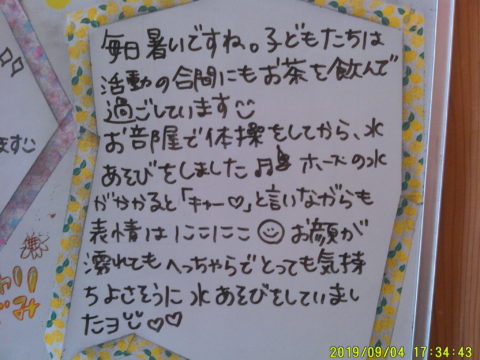 毎日暑いですね。子どもたちは
活動の合間にもお茶を飲んで
過ごしています
お部屋で体操をしてから、水
あそびをしました♫ ホースの水
がかかると「キャー♡」と言いながらも
表情はにこにこ☺お顔が
濡れてもへっちゃらでとっても気持
ちよさそうに水あそびをしていまし
たヨ♡♡
ます
2019/09/04 17:34:43